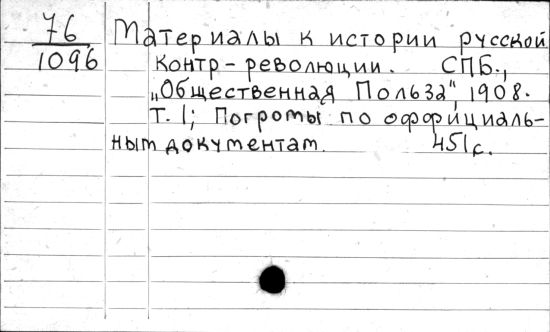 76
1096
Материалы к истории русской
контр-революции. СПБ.,
„Общественная Польза", 1908.
Т. 1; Погромы по оффициаль-
ным документам. 451 с.